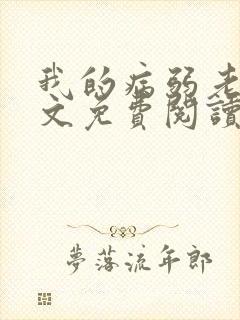 我的病弱老
文免費閱讀
夢落流年郎